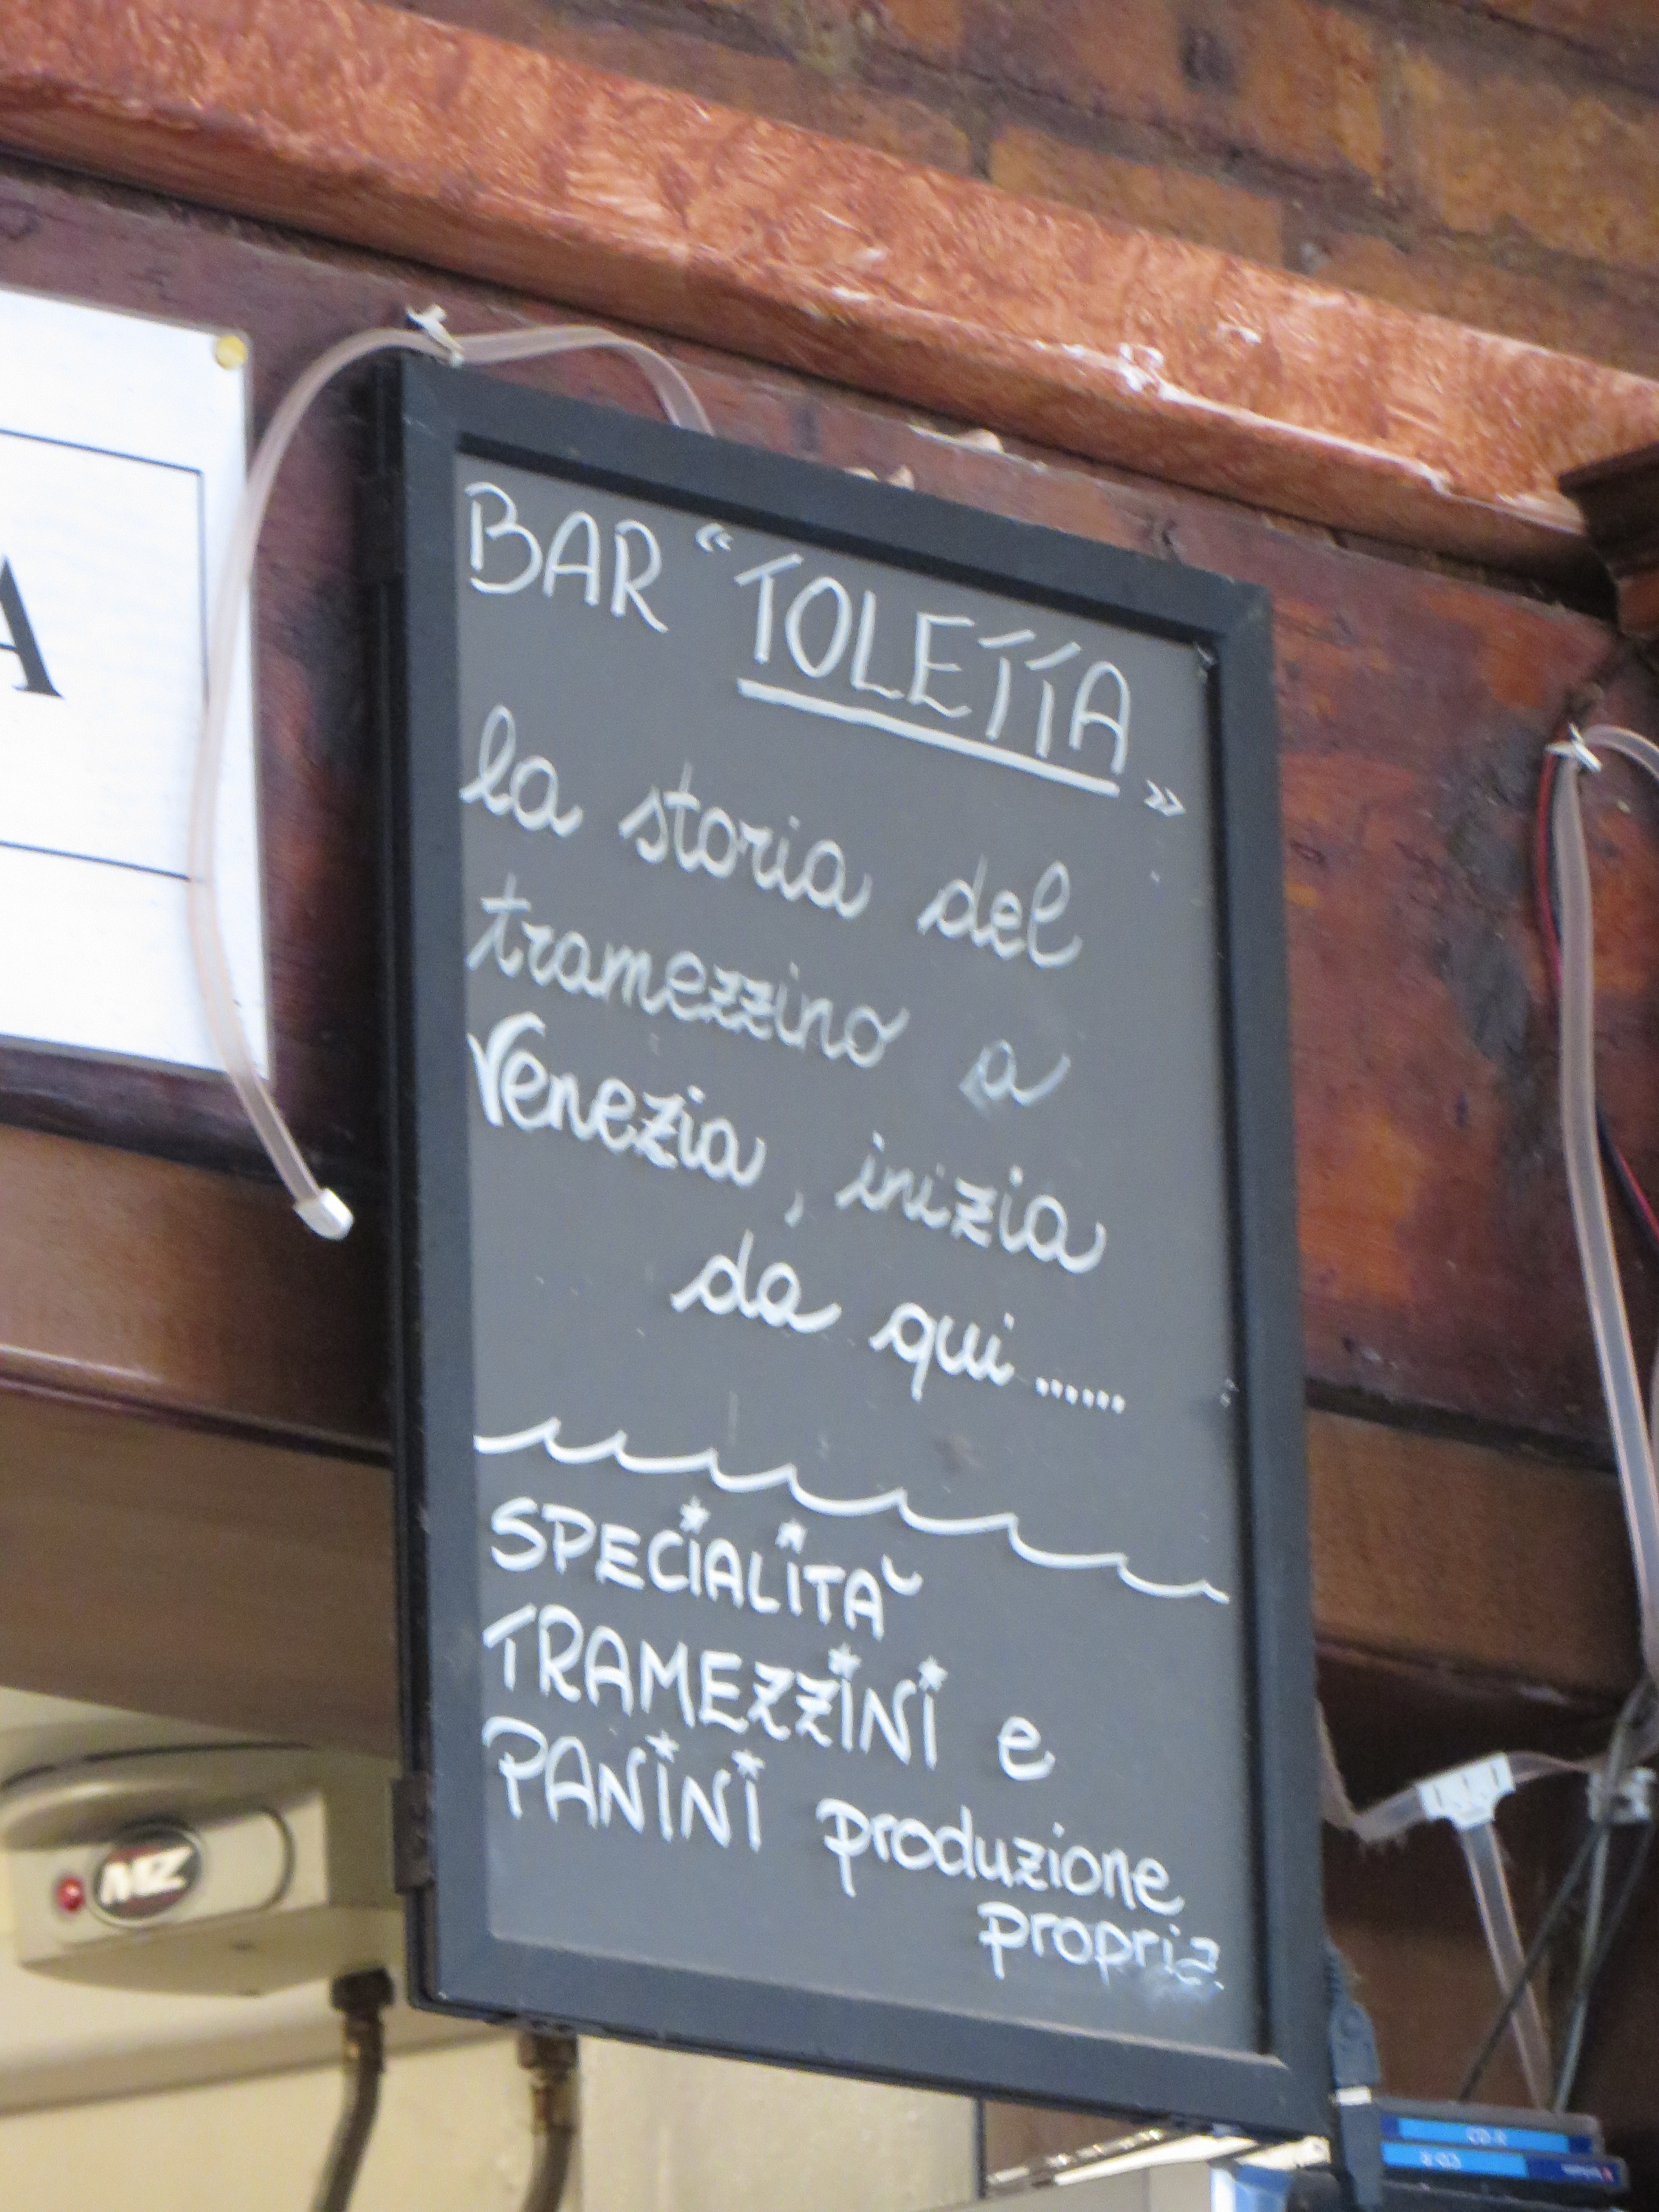 BAR “TOLETTA”
la storia del
tramezzino a
Venezia, inizia
da qui......
SPECIALITÀ
TRAMEZZINI e
PANINI produzione
propria
A
MZ
CD-R